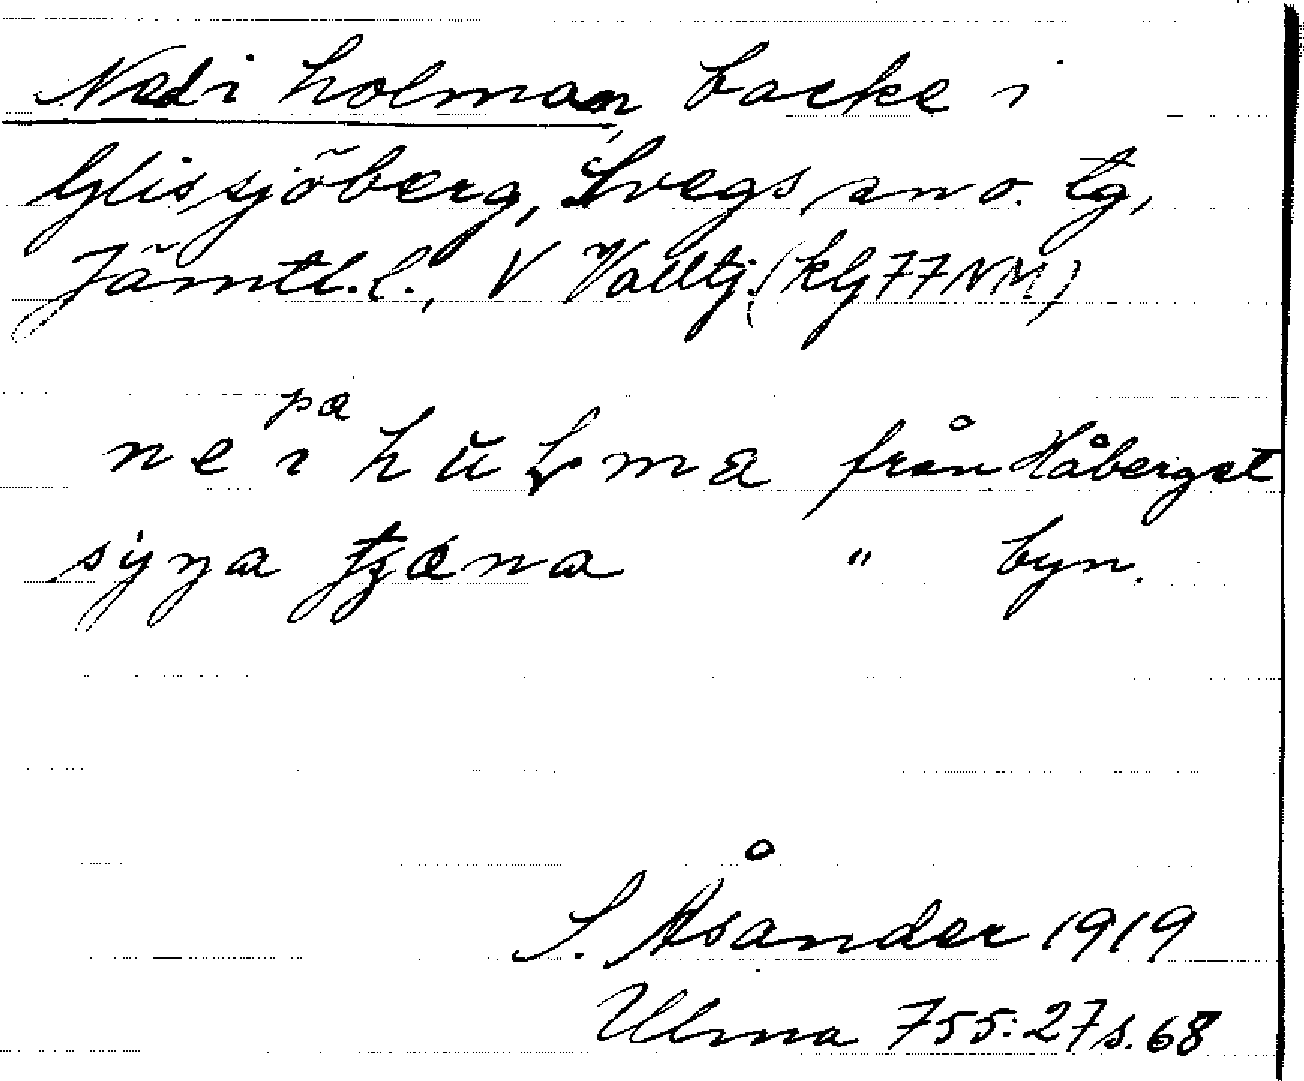 Nedi holman, backe i
Glissjöberg, Svegs sn o. tg,
Jämtl. l., V Valltj. (kG77NM)
på
ne i hŭɽma från Håberget
" byn.
S. Åsander 1919
Ulma 755:27 s. 68